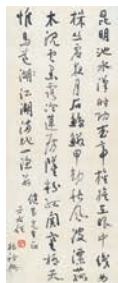 昆明池水漢時功武帝旌旗在眼中織女
機絲虛夜月石鯨鱗甲動秋風波漂菰
米沈雲黑露冷蓮房墜粉紅關塞極天
惟鳥道江湖滿地一漁翁
先生正
于右任